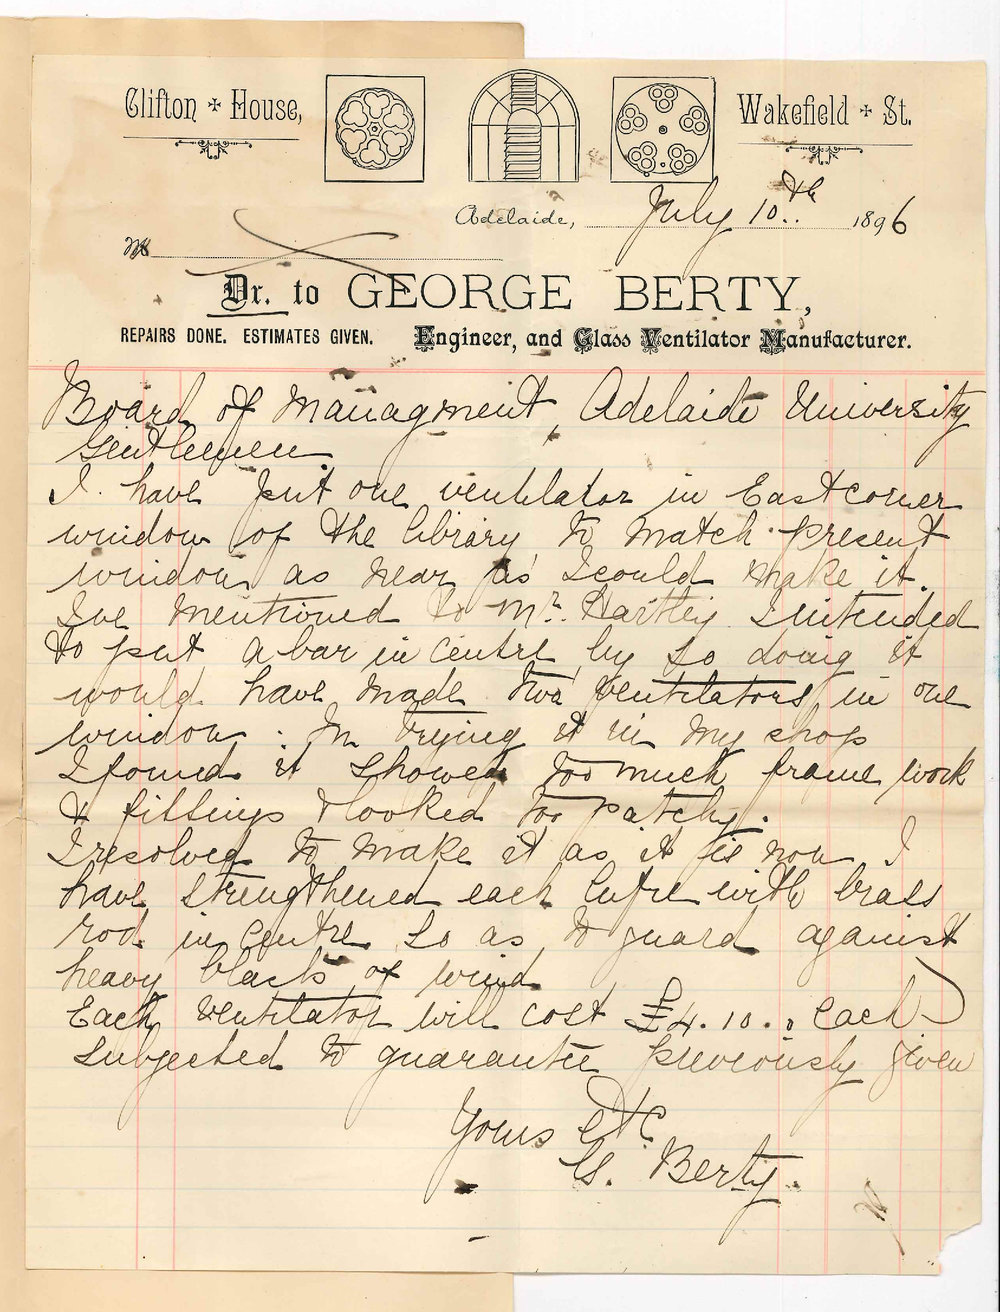 Clifton + House, Wakefield + St.
Adelaide, July 10.th 1896
M
Dr. to GEORGE BERTY,
REPAIRS DONE. ESTIMATES GIVEN. Engineer, and Glass Ventilator Manufacturer.
Board of Managment, Adelaide University
Gentlemen
I have put one ventilator in East corner
window of the library, to match present
window as near as I could make it.
I've mentioned to Mr. Hartley I intended
to put a bar in centre, by so doing it
would have made two ventilators in one
window. In trying it in my shop
I found it showed too much frame work
& fittings & looked too patchy.
I resolved to make it as it is now I
have strengthened each lufre with brass
rod in centre so as to guard against
heavy blasts of wind
Each ventilator will cost £4.10.. each
subjected to guarantee previously given
Yours etc
G. Berty.